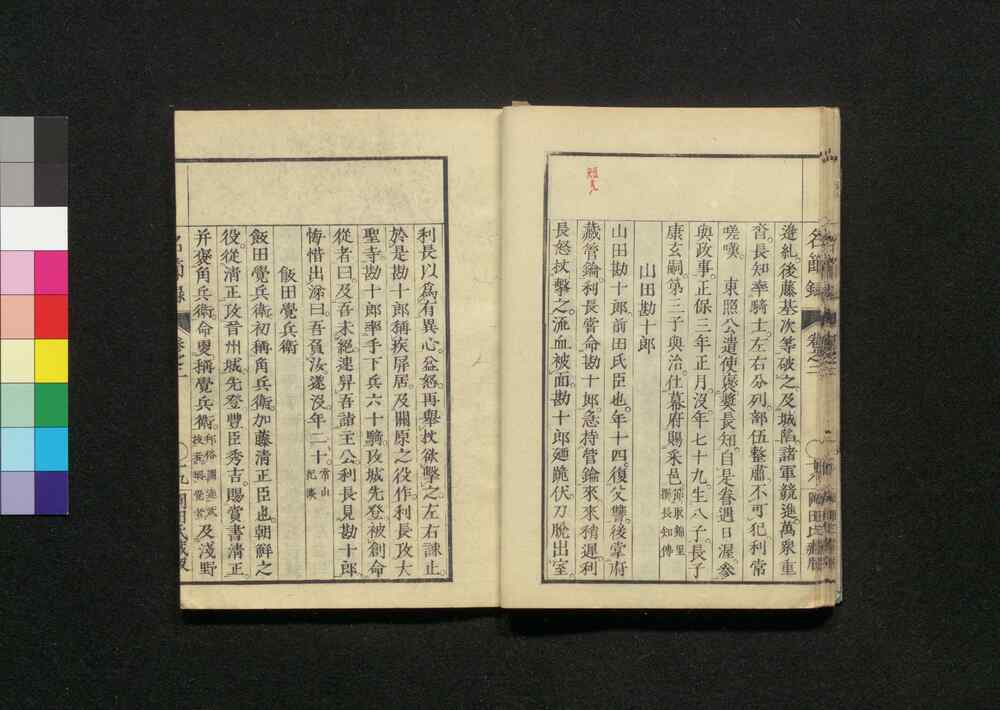 名節録 卷之二
逢糺後藤基次等破之及城陷諸軍競進萬衆重
沓長知率騎士左右分列部伍整肅不可犯利常
嗟嘆東照公遣使襃奬長知自是眷遇日渥參
與政事正保三年正月沒年七十九生八子長子
康玄嗣第三子與治仕幕府賜采邑
山田勘十郎
山田勘十郎前田氏臣也年十四復父讐後掌府
藏管鑰利長嘗命勘十郎急持管鑰來來稍遲利
長怒杖擊之流血被面勘十郎廼跪伏刀脫出室
利長以爲有異心益怒再舉杖欲擊之左右諫止
於是勘十郎稱疾屏居及關原之役作利長攻大
聖寺勘十郎率手下兵六十騎攻城先登被創命
從者曰及吾未絕速舁吾詣主公利長見勘十郎
悔惜出涕曰吾負汝遂沒年二十
飯田覺兵衛
飯田覺兵衛初稱角兵衛加藤清正臣也朝鮮之
役從清正攻晉州城先登豐臣秀吉賜賞書清正
幷襃角兵衛命更稱覺兵衛及淺野